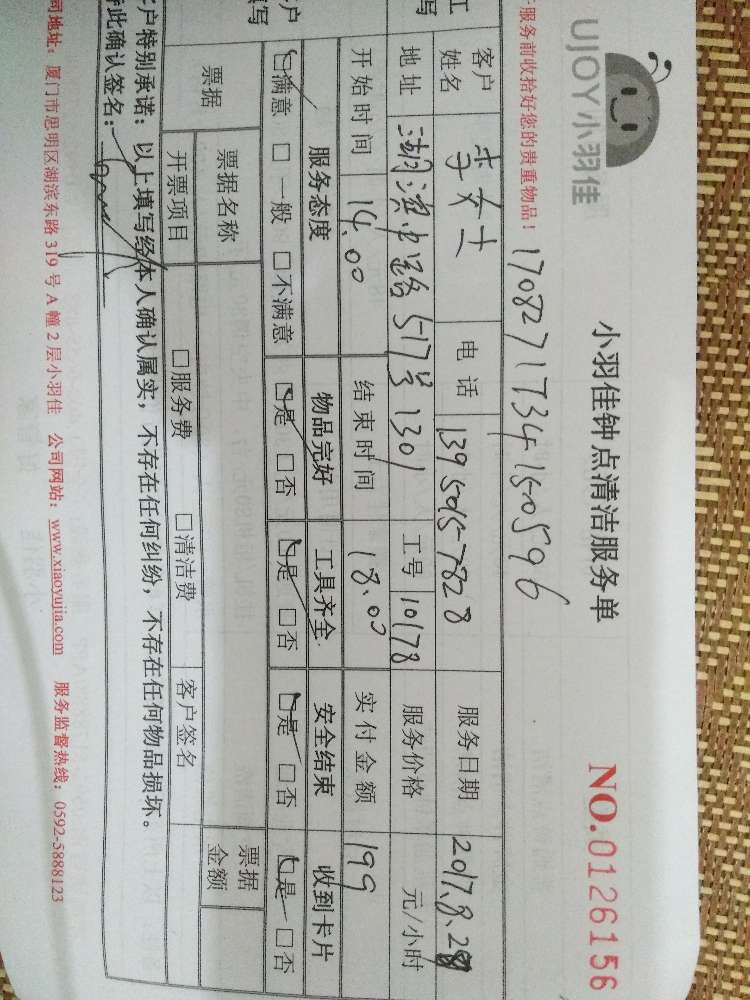 UJOY小羽佳
小羽佳钟点清洁服务单
NO.0126156
服务前收拾好您的贵重物品!
客户姓名 李女士 电话 13950157828 服务日期 2017.8.28
地址 湖滨中路517号1301 工号 10178 服务价格 元/小时
开始时间 14.00 结束时间 18.00 实付金额 199
服务态度 物品完好 工具齐全 安全结束 收到卡片
☑满意 □一般 □不满意 ☑是 □否 ☑是 □否 ☑是 □否 ☑是 □否
票据 票据名称 票据金额
开票项目 □服务费 □清洁费 客户签名
户特别承诺:以上填写经本人确认属实,不存在任何纠纷,不存在任何物品损坏。
此确认签名:
司地址:厦门市思明区湖滨东路319号A幢2层小羽佳 公司网站:www.xiaoyujia.com 服务监督热线:0592-5888123